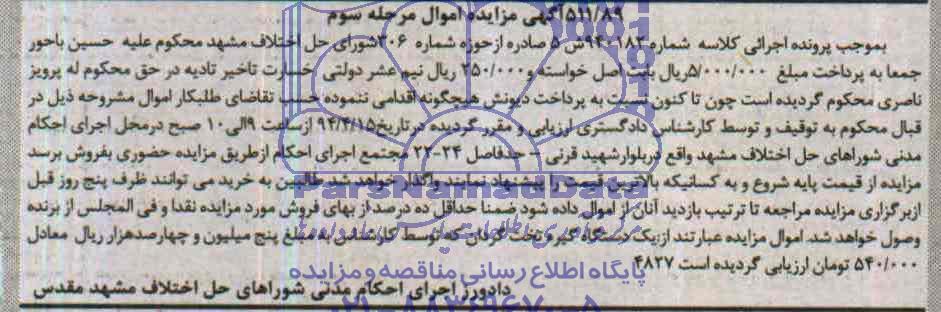 ۵۱۱/۸۹ آگهی مزایده اموال مرحله سوم
بموجب پرونده اجرائی کلاسه شماره ۹۴۰۱۸۲ش ۵ صادره ازحوزه شماره ۳۰۶شورای حل اختلاف مشهد محکوم علیه حسین باخور
جمعا به پرداخت مبلغ ۵/۰۰۰/۰۰۰ریال بابت اصل خواسته و ۲۵۰/۰۰۰ ریال نیم عشر دولتی خسارت تاخیر تادیه در حق محکوم له پرویز
ناصری محکوم گردیده است چون تا کنون نسبت به پرداخت دیونش هیچگونه اقدامی ننموده حسب تقاضای طلبکار اموال مشروحه ذیل در
قبال محکوم به توقیف و توسط کارشناس دادگستری ارزیابی و مقرر گردیده درتاریخ ۹۴/۴/۱۵ ازساعت ۹الی۱۰ صبح درمحل اجرای احکام
مدنی شوراهای حل اختلاف مشهد واقع دربلوارشهید قرنی – حدفاصل ۲۴-۲۲ مجتمع اجرای احکام ازطریق مزایده حضوری بفروش برسد
مزایده از قیمت پایه شروع و به کسانیکه بالاترین قیمت را پیشنهاد نمایند واگذار خواهد شد طالبین به خرید می توانند ظرف پنج روز قبل
ازبرگزاری مزایده مراجعه تا ترتیب بازدید آنان از اموال داده شود ضمنا حداقل ده درصد از بهای فروش مورد مزایده نقدا و فی المجلس از برنده
وصول خواهد شد. اموال مزایده عبارتند ازیک دستگاه گیره تخت گردان که توسط کارشناس به مبلغ پنج میلیون و چهارصدهزار ریال معادل
۵۴۰/۰۰۰ تومان ارزیابی گردیده است ۴۸۲۷
پایگاه اطلاع رسانی مناقصه و مزایده
دادورز اجرای احکام مدنی شوراهای حل اختلاف مشهد مقدس